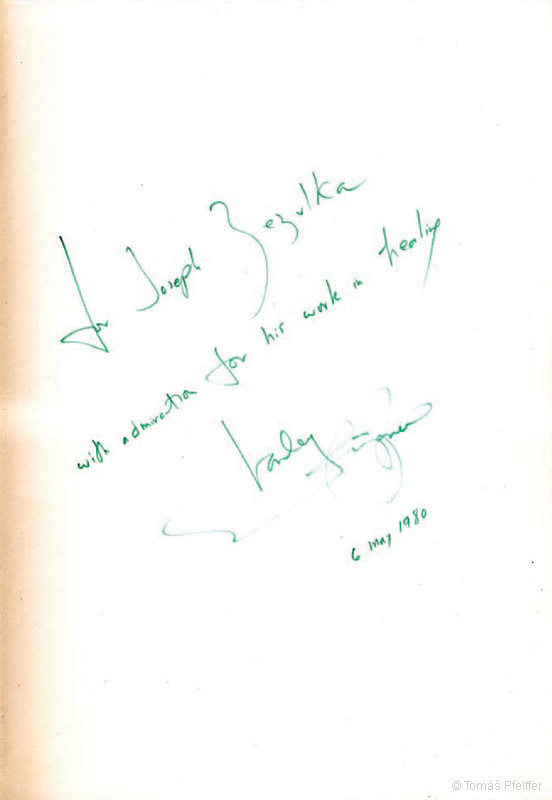 for Joseph Zezulka
with admiration for his work in healing
Stanley Krippner
6 May 1980
© Tomáš Pfeiffer